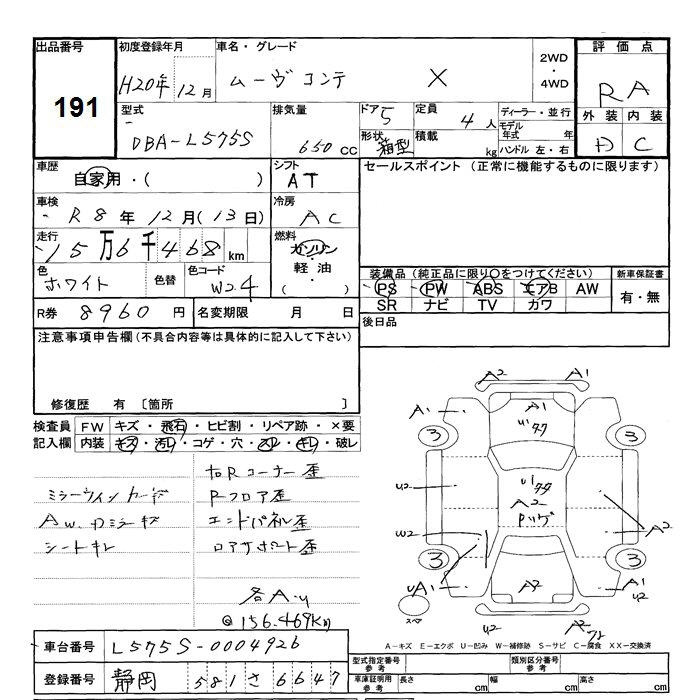 出品番号 初度登録年月 車名・グレード 2WD ・ 4WD 評価点
191 H20年12月 ムーヴ コンテ X RA
型式 排気量 ドア 5 定員 4人 ディーラー・並行 外装 内装
DBA-L575S 650cc 形状 箱型 積載 kg モデル年式 年 ハンドル 左・右 D C
車歴 自家用・( ) シフト AT セールスポイント (正常に機能するものに限ります)
車検 R8年12月(13日) 冷房 AC
走行 15万6千468km 燃料 ガソリン・軽油・( )
色 ホワイト 色替 色コード W24
装備品(純正品に限り○をつけてください) 新車保証書
PS PW ABS エアB AW 有・無
SR ナビ TV カワ
R券 8960円 名変期限 月 日 後日品
注意事項申告欄(不具合内容等は具体的に記入して下さい)
修復歴 有 〔箇所 〕
検査員記入欄 FW キズ・飛石・ヒビ割・リペア跡・×要
内装 キズ・汚レ・コゲ・穴・スレ・キレ・破レ
右Rコーナー歪
ミラーウィンカーキズ Rフロア歪
AW.Dミラーキズ エンドパネル歪
シートキレ ロアサポート歪
各A.U
@156.469Km
A2 A1
A1 A1 A1
3 U1 タタ 3
U2 U1 タタ
A2
W2 Pツゲ A2
3 3
UA1 A2 A1U
スペア U2 A2
A-キズ E-エクボ U-凹み W-補修跡 S-サビ C-腐食 XX-交換済
車台番号 L575S-0004926 型式指定番号 参考 類別区分番号 参考
登録番号 静岡 581さ6647 車庫証明用 参考 長さ cm 幅 cm 高さ cm